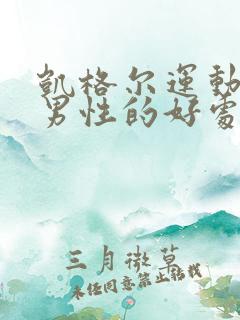 凯格尔運動
男性的好處
三月微草
未经同意禁止转载